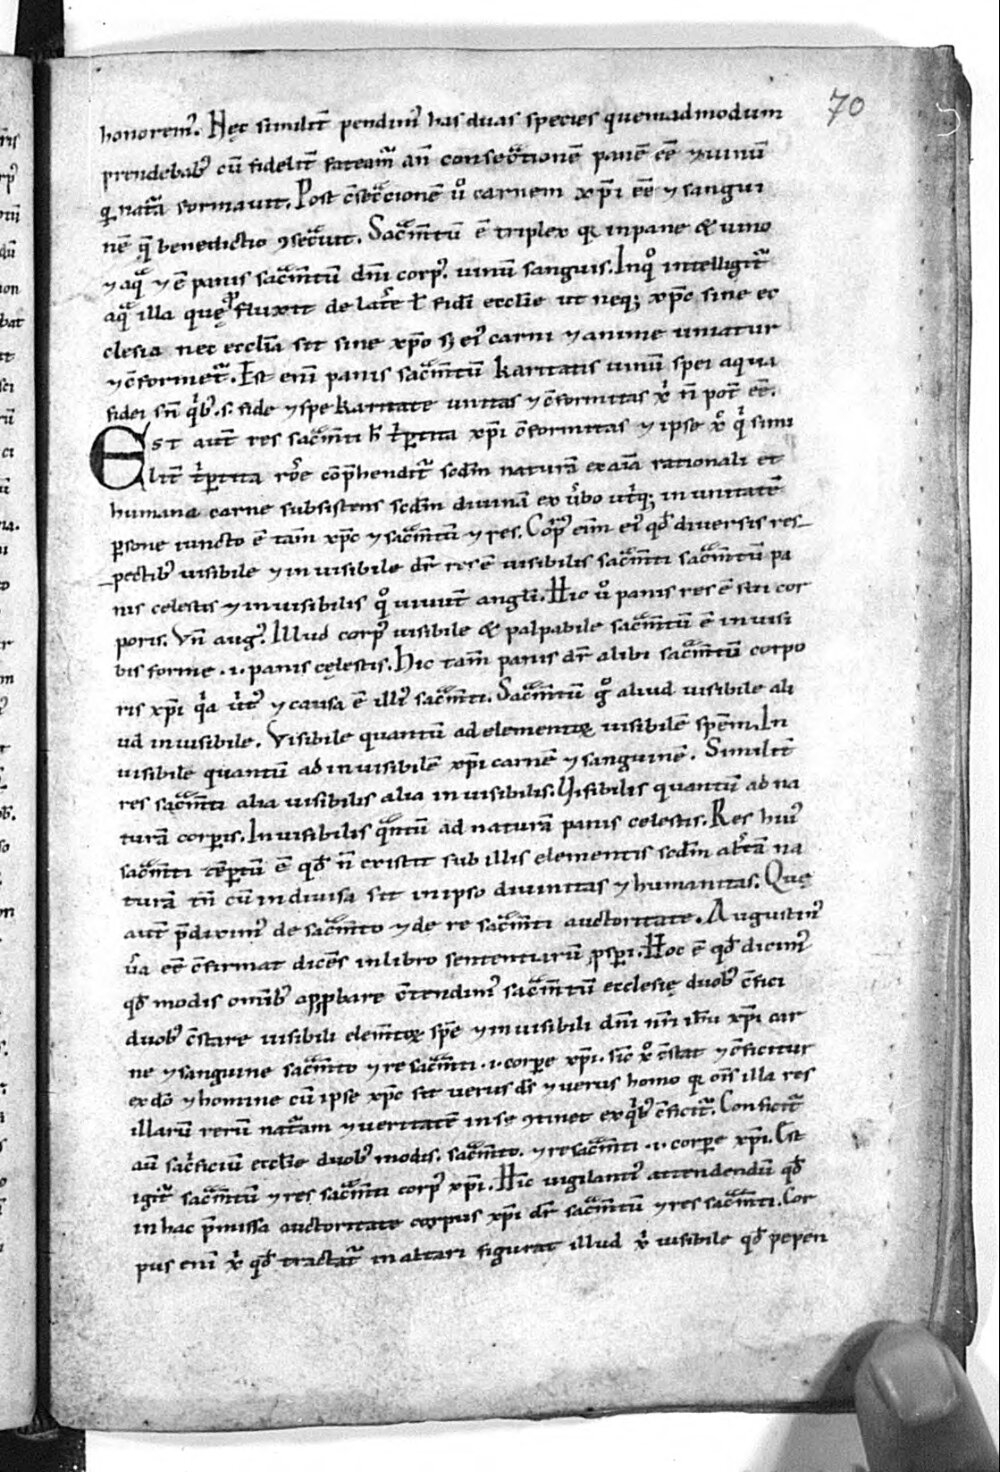 70
honorem᾽. Hęc similit̄ pendim᾽ has duas species quemadmodum
prendebab᾽ cū fidelit̄ fateam᾽ an̄ consec̄tionē panē eē ⁊ uinū
q̄ nat̄a formauit. Post c̄sec̄cionē ů carnem xp̄i eē ⁊ sangui
nē q̄ benedictio ꝯsec̄uit. Sac̄m̄tū ē triplex qr in pane & uino
⁊ aq̄ ⁊ ē panis sac̄m̄tū dn̄i corp᾽. uinū sanguis. In qͦ intelligit᾽
aq̄ illa quę fluxit de lat̄e ł fidi ecclīe ut neq; xp̄c sine ec
clesia nec ecclīa sit sine xp̄o s; ei᾽ carni ⁊ anime uniatur
⁊ c̄formet᾽. Est eni panis sac̄m̄tū karitatis uinū spei aqua
fidei sn̄ qͥb᾽. s. fide ⁊ spe karitate unitas ⁊ c̄formitas xͥ n̄ pot̄ eē.
Est aut̄ res sac̄m̄ti h̄ tͥptita xp̄i c̄formitas ⁊ ipse xͦ qͥ simi
lit̄ tͥptita rōe cōp̄hendit᾽ scdm̄ naturā ex aīa rationali et
humana carne subsistens scdm̄ diuinā ex ůbo utͥq; in unitatē
ꝑsone iuncto ē tam̄ xp̄c ⁊ sac̄m̄tū ⁊ res. Corp᾽ eim̄ ei᾽ qd̄ diuersis res
pectib᾽ uisibile ⁊ inuisibile dr̄ res ē uisibilis sac̄m̄ti sac̄m̄tū pa
nis celestis ⁊ inuisibilis qͦ uiuūt angli. Hic ů panis res ē sc̄i cor
poris. Vn̄ aug᾽. Illud corp᾽ uisibile & palpabile sac̄m̄tū ē inuisi
bis forme .i. panis cęlestis. Hic tam̄ panis dr̄ alibi sac̄m̄tū corpo
ris xp̄i qͥa uͥt᾽ ⁊ causa ē illi᾽ sac̄m̄ti. Sac̄m̄tū gͦ aliud uisibile ali
ud inuisibile. Visibile quantū ad elementoꝝ uisibilē spēm. In
uisibile quantū ad inuisibilē xp̄i carnē ⁊ sanguinē. Similit̄
res sac̄m̄ti alia uisibilis alia inuisibilis. Visibilis quantū ad na
turā corꝑis. Inuisibilis qntū ad naturā panis celestis. Res hui᾽
sac̄m̄ti ē qd̄ n̄ existit sub illis elementis scdm̄ alt̄am na
turā tn̄ cū indiuisa sit in ipso diuinitas ⁊ humanitas. Quę
aut̄ p̄dixim᾽ de sac̄m̄to ⁊ de re sac̄m̄ti auctoritate. Augustin᾽
ůa eē c̄firmat dicēs in libro sententiarū ꝓspi. Hoc ē qd̄ dicim᾽
qd̄ modis om̄ib᾽ apꝓbare c̄tendim᾽ sac̄m̄tū ecclesię duob᾽ c̄fici
duob᾽ c̄stare uisibili elem̄toꝝ spē ⁊ inuisibili dn̄i nr̄i ih̄u xp̄i car
ne ⁊ sanguine sac̄m̄to ⁊ re sac̄m̄ti .i. corꝑe xp̄i. sic̄ xͦ c̄stat ⁊ c̄ficitur
ex dō ⁊ homine cū ipse xp̄c sit uerus ds̄ ⁊ uerus homo qr om̄s illa res
illarū rerū nat̄am ⁊ ueritatē in se ꝯtinet ex qͥb᾽ c̄ficit᾽. Conficit᾽
aū sacͥficiū ecclīe duob᾽ modis. sac̄m̄to. ⁊ re sac̄m̄ti .i. corꝑe xp̄i. Est
igit᾽ sac̄m̄tū ⁊ res sac̄m̄ti corp᾽ xp̄i. Hic uigilant᾽ attendendū qd̄
in hac p̄missa auctoritate corpus xp̄i dr̄ sac̄m̄tū ⁊ res sac̄m̄ti. Cor
pus eni xͥ qd̄ tractat᾽ in altari figurat illud xͥ uisibile qd̄ pepen